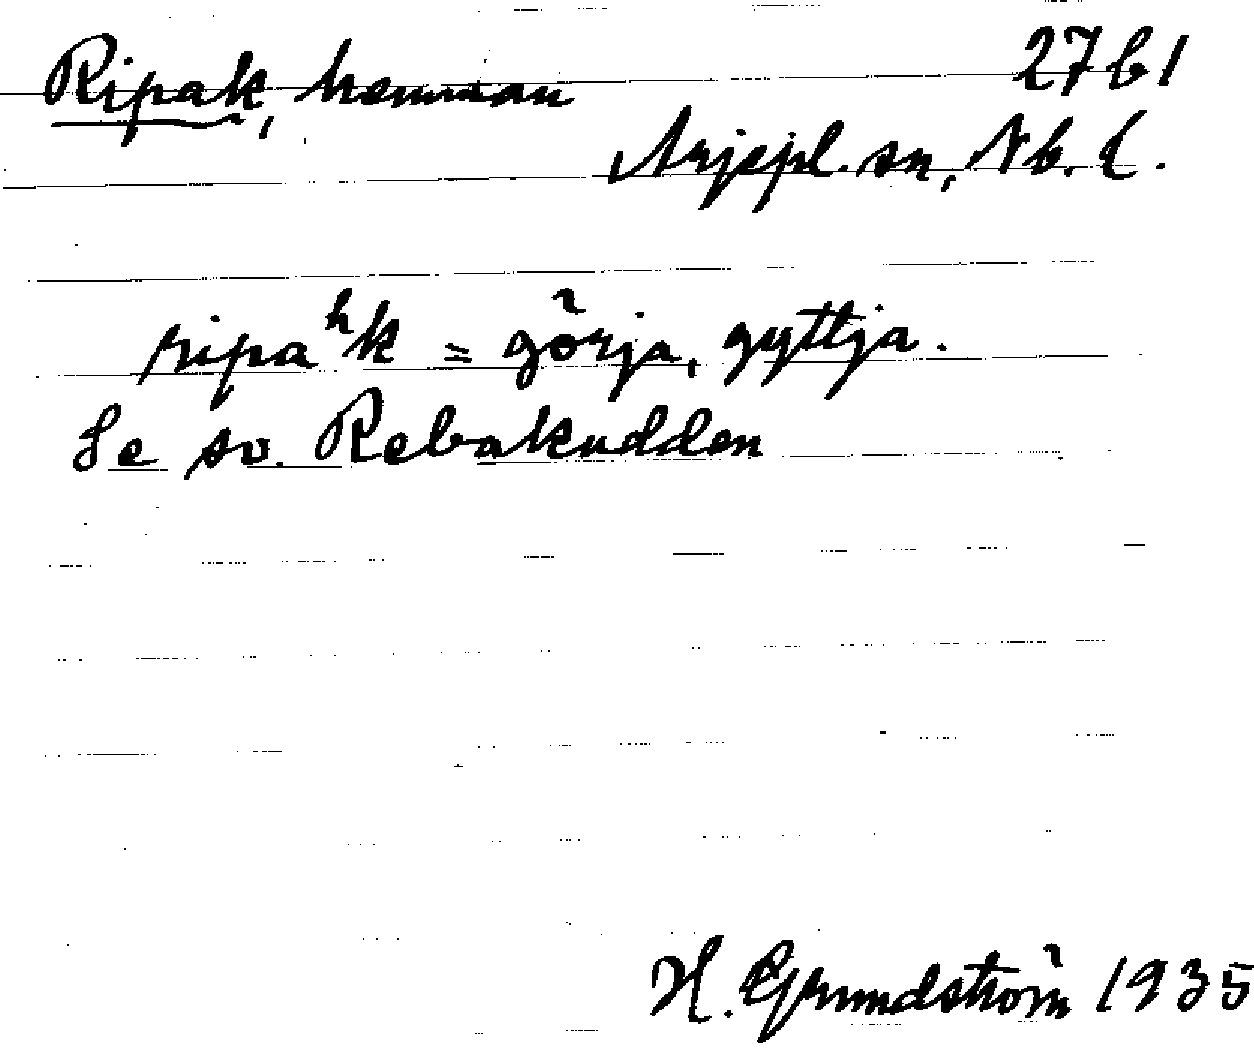 Ripak, hemman 27b1
Arjepl. sn, Nb. l.
ripaʰk = görja, gyttja.
Se sv. Rebakudden
H. Grundström 1935